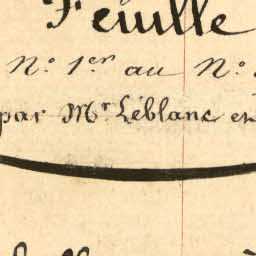 Feuille
N.° 1.er au N.°
par M.r Léblanc en